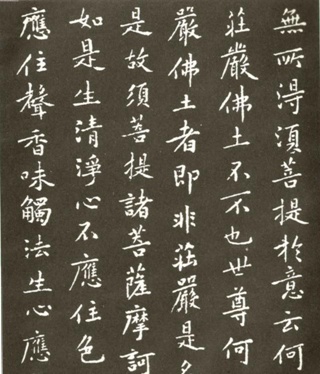 無所得須菩提於意云何
莊嚴佛土不不也世尊何
嚴佛土者即非莊嚴是
是故須菩提諸菩薩摩訶
如是生清淨心不應住色
應住聲香味觸法生心應